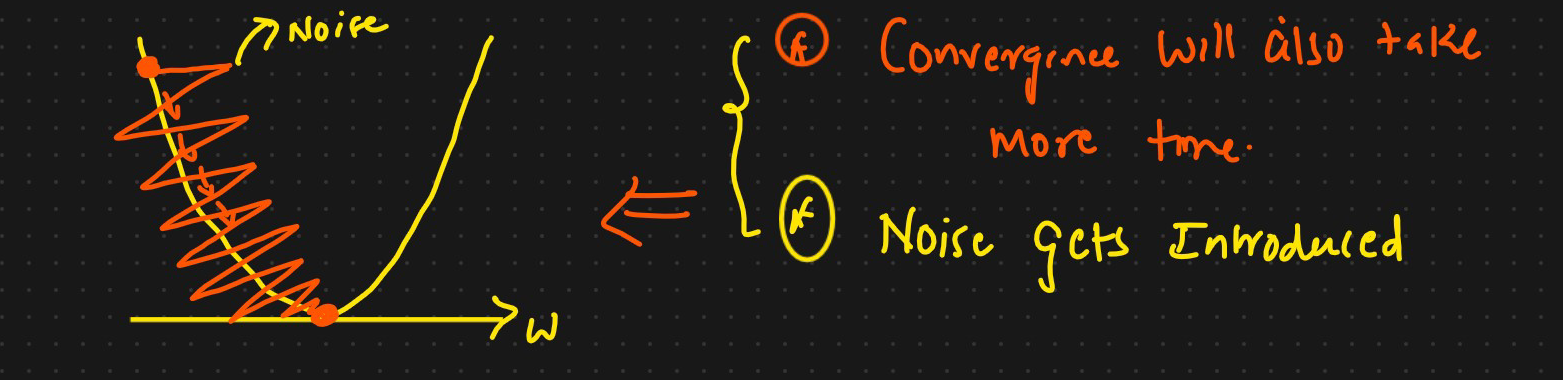 Noise
Convergence will also take
more time.
Noise gets Introduced
W